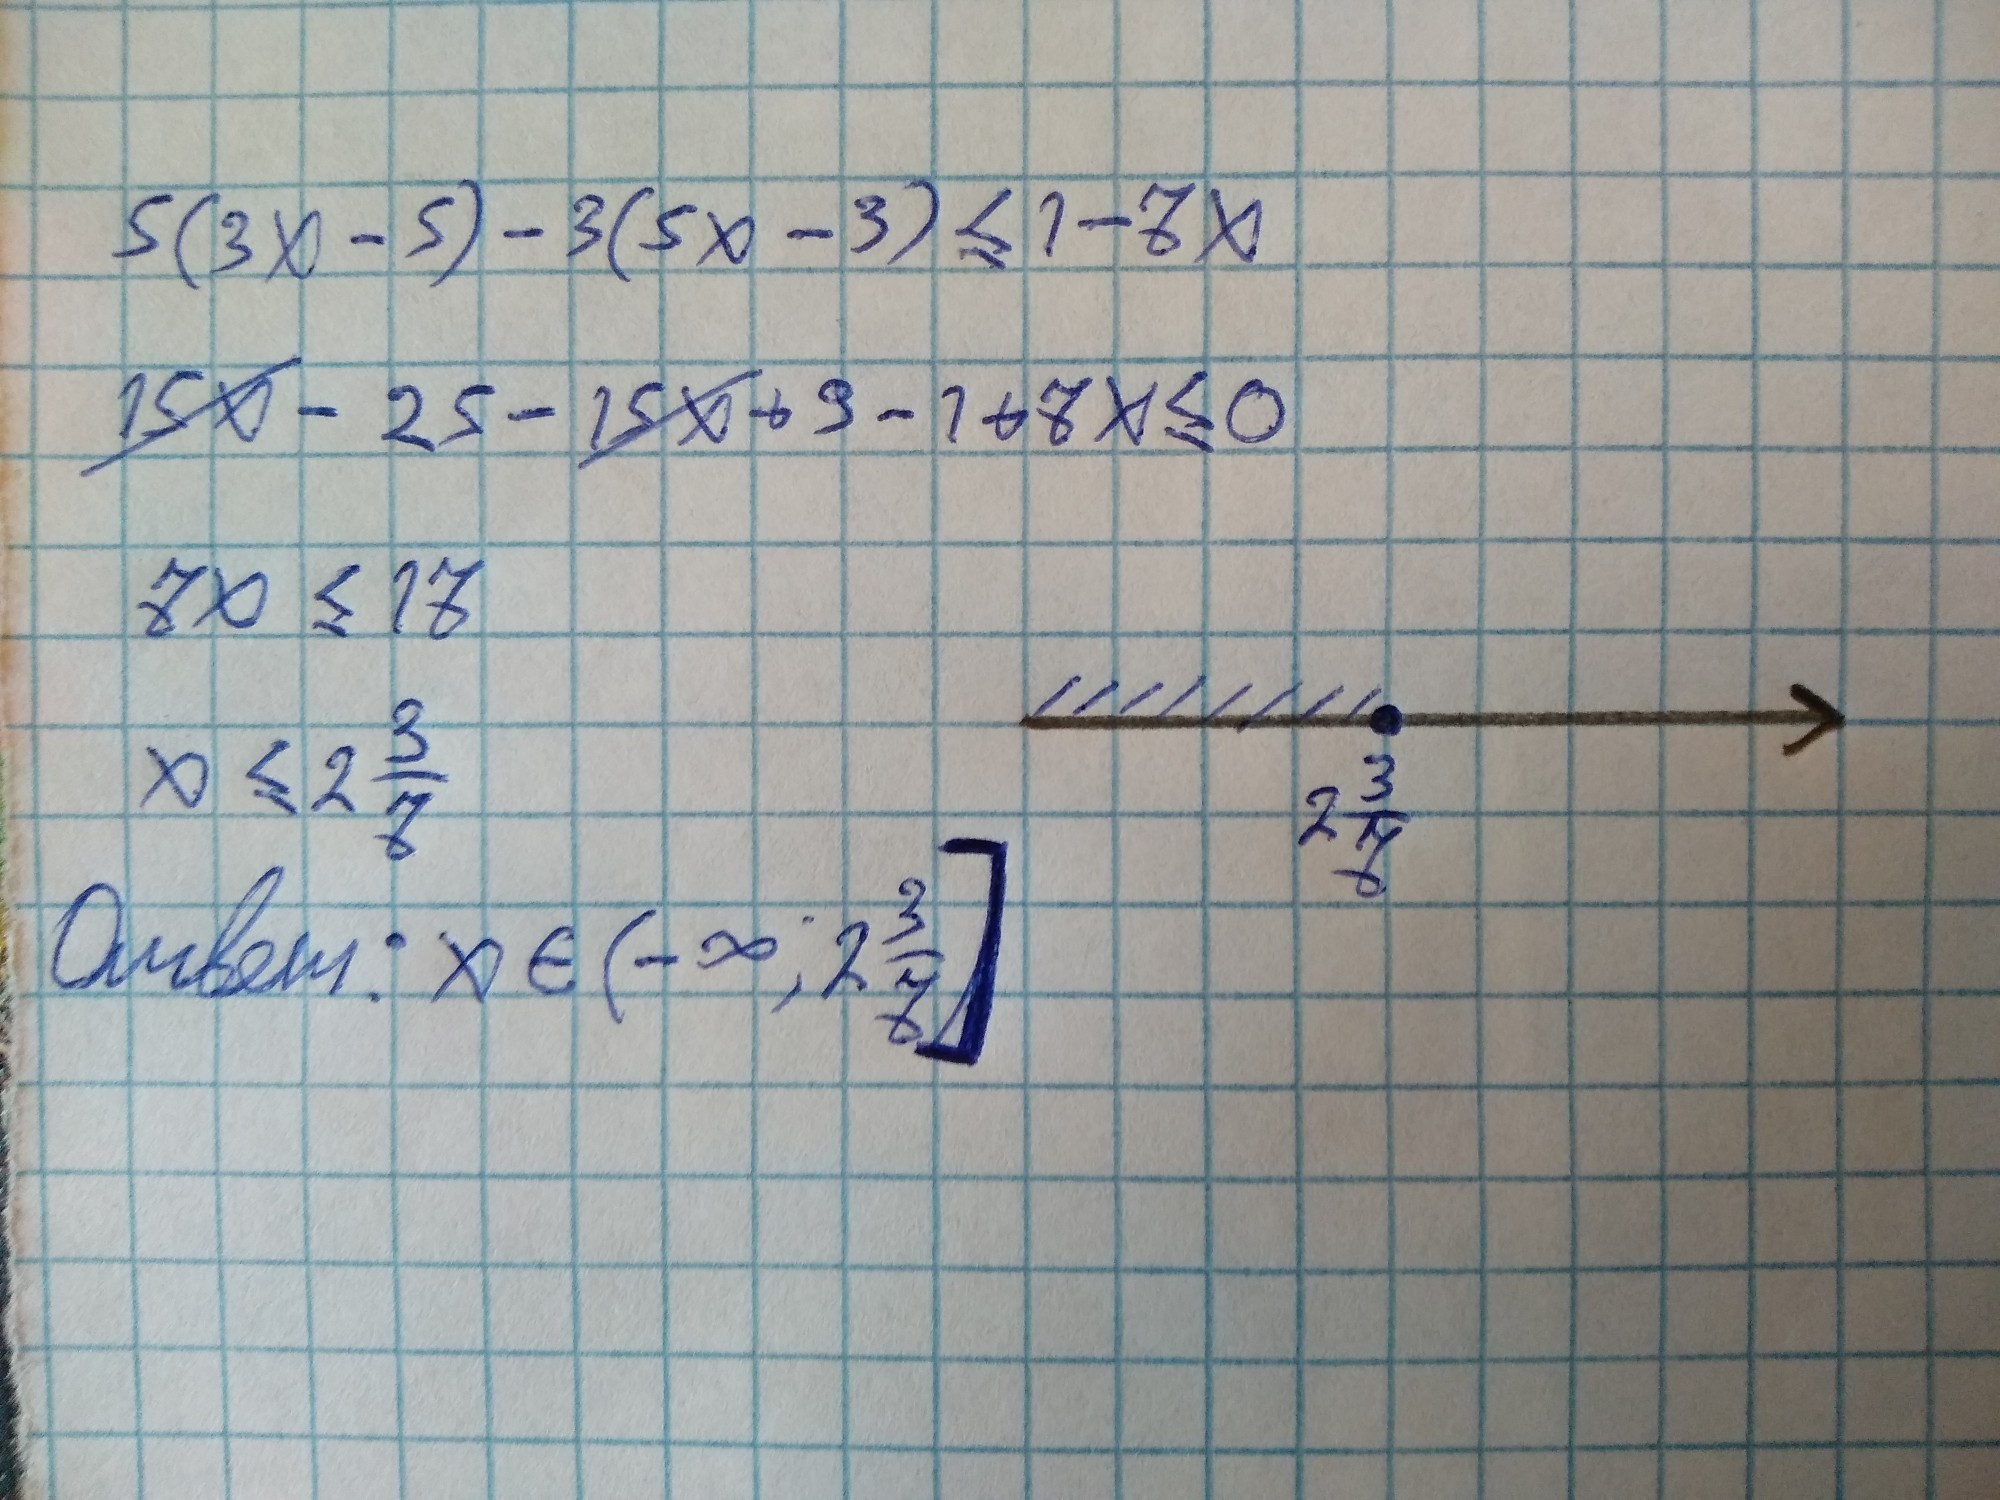 5(3x - 5) - 3(5x - 3) ≤ 1 - 7x
15x - 25 - 15x + 9 - 1 + 7x ≤ 0
7x ≤ 17
x ≤ 2 3/7
2 3/7
Ответ: x ∈ (-∞; 2 3/7]